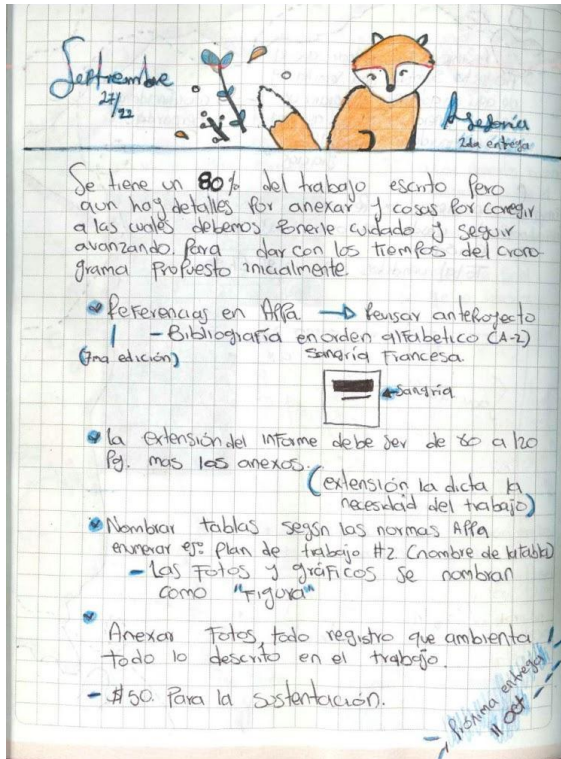 Septiembre
27/22
Asesoría
2da entrega
Se tiene un 80% del trabajo escrito Pero
aun hay detalles por anexar y cosas Por coregir
a las cuales debemos Ponerle cuidado y seguir
avanzando. Para dar con los tiempos del crono-
grama Propuesto inicialmente.
Referencias en APPA → Revisar anteRoyecto
- Bibliografía en orden alfabetico (A-Z)
(7ma edición) Sangría Francesa
Sangría
la extensión del informe debe ser de 80 a 120
Pg. mas los anexos.
(extensión la dicta la
necesidad del trabajo)
Nombrar tablas segsn las normas APPA
enumerar ejº Plan de trabajo #2 (nombre de la tabla)
- Las Fotos y gráficos se nombran
como "Figura"
Anexar Fotos, todo registro que ambienta
todo lo descrito en el trabajo.
- $50. Para la sustentación.
Próxima entrega
11 oct